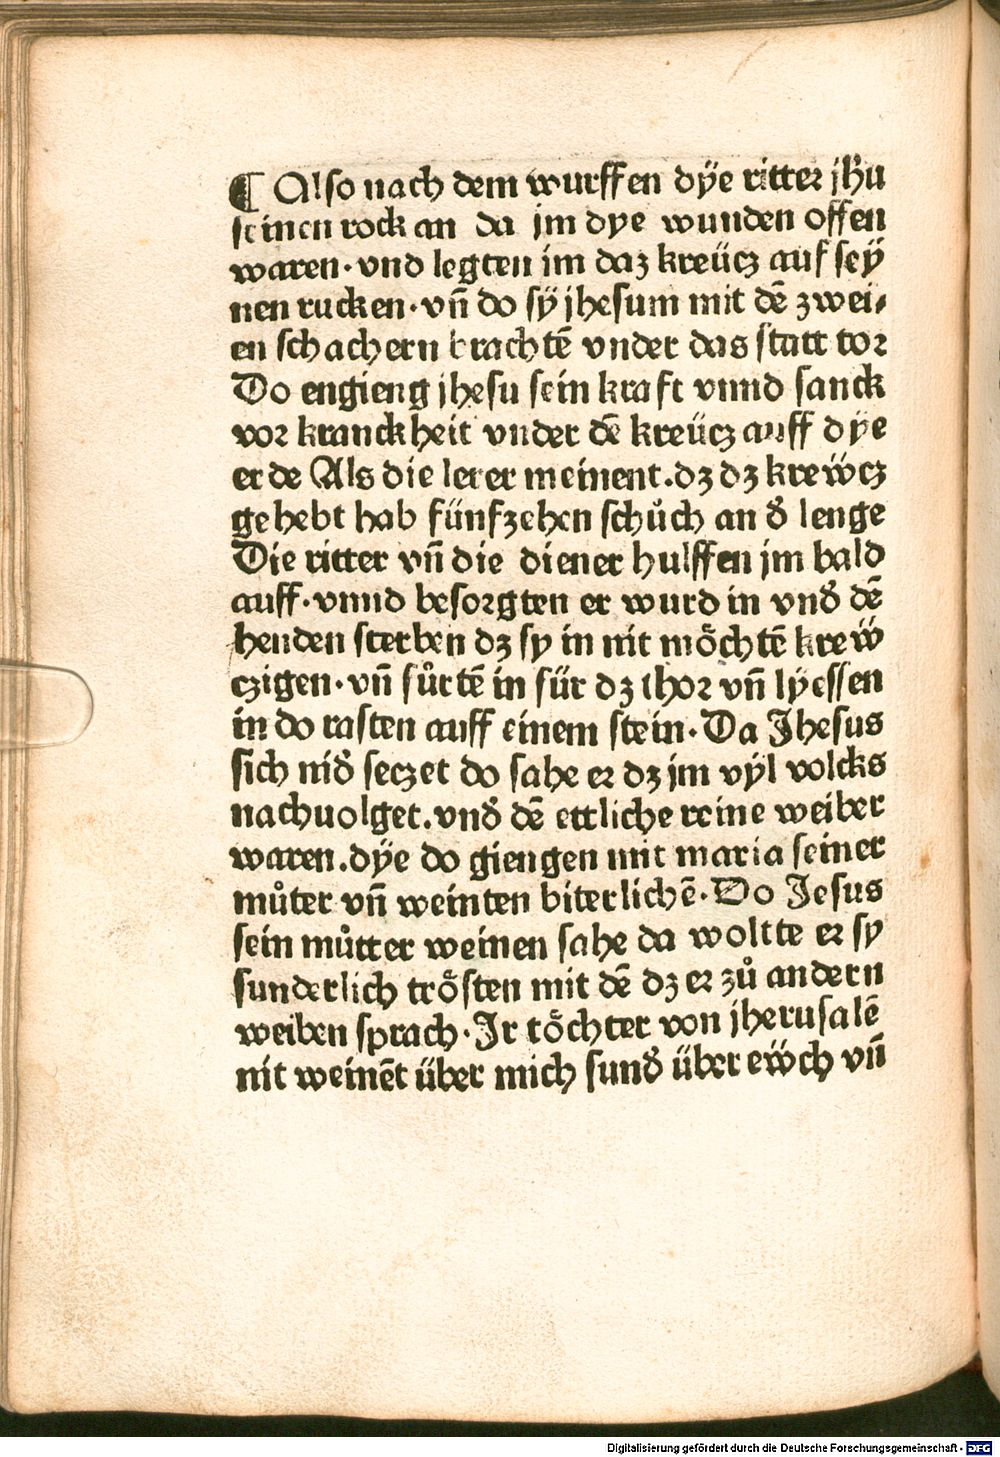 ¶ Also nach dem wurffen dÿe ritter jh̄u
seinen rock an da jm dye wunden offen
waren · vnd legten im daz kreücz auf seÿ
nen rucken · vn̄ do sÿ jhesum mit dē zwei⸗
en schachern brachtē vnder das statt tor
Do engieng jhesu sein kraft vnnd sanck
vor kranckheit vnder dē kreücz auff dÿe
erde Als die lerer meinent . dz dz krewcz
gehebt hab fünfzehen schůch an d̓ lenge
Die ritter vn̄ die diener hulffen jm bald
auff · vnnd besorgten er wurd in vnd̓ dē
henden sterben dz sy in nit mo̊chtē krew̎
czigen · vn̄ fůrtē in für dz thor vn̄ lÿessen
in do rasten auff einem stein · Da Jhesus
sich nid̓ seczet do sahe er dz jm vÿl volcks
nachuolget . vnd̓ dē ettliche reine weiber
waren . dÿe do giengen mit maria seiner
můter vn̄ weinten biterlichē · Do Jesus
sein můtter weinen sahe da woltte er sy
sunderlich tro̊sten mit dē dz er zů andern
weiben sprach · Jr to̊chter von jherusalē
nit weinēt über mich sund̓ über ew̎ch vn̄
Digitalisierung gefördert durch die Deutsche Forschungsgemeinschaft - DFG